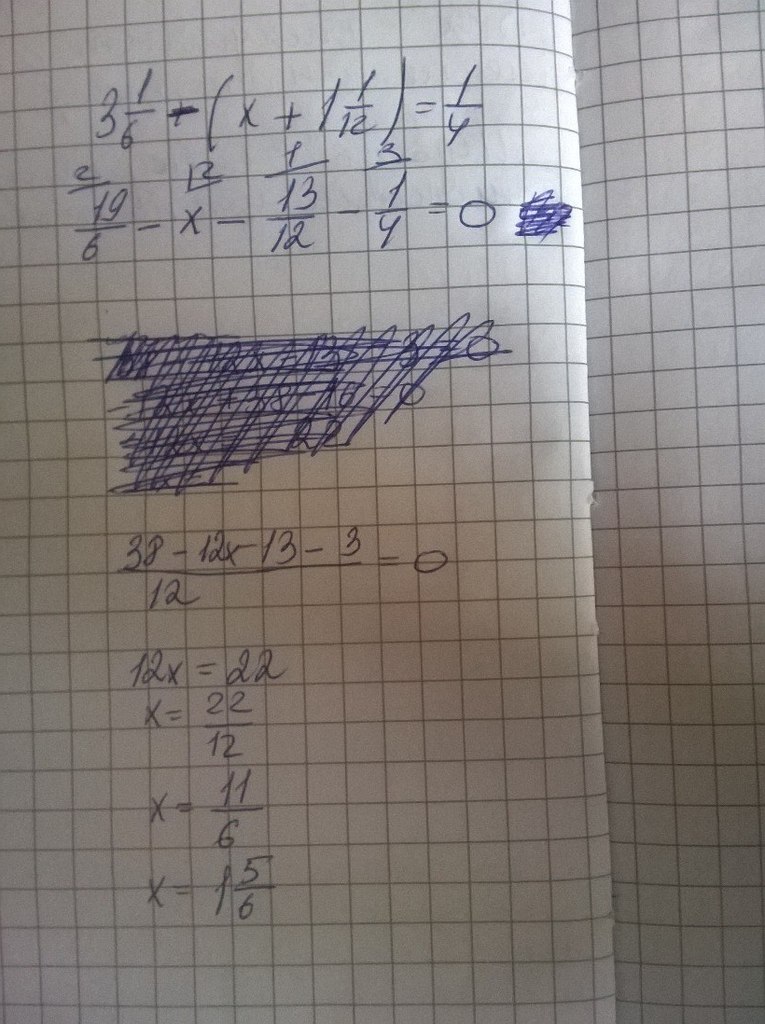 3 1/6 - (x + 1 1/12) = 1/4
2 12 1 3
19/6 - x - 13/12 - 1/4 = 0
(38 - 12x - 13 - 3)/12 = 0
12x = 22
x = 22/12
x = 11/6
x = 1 5/6